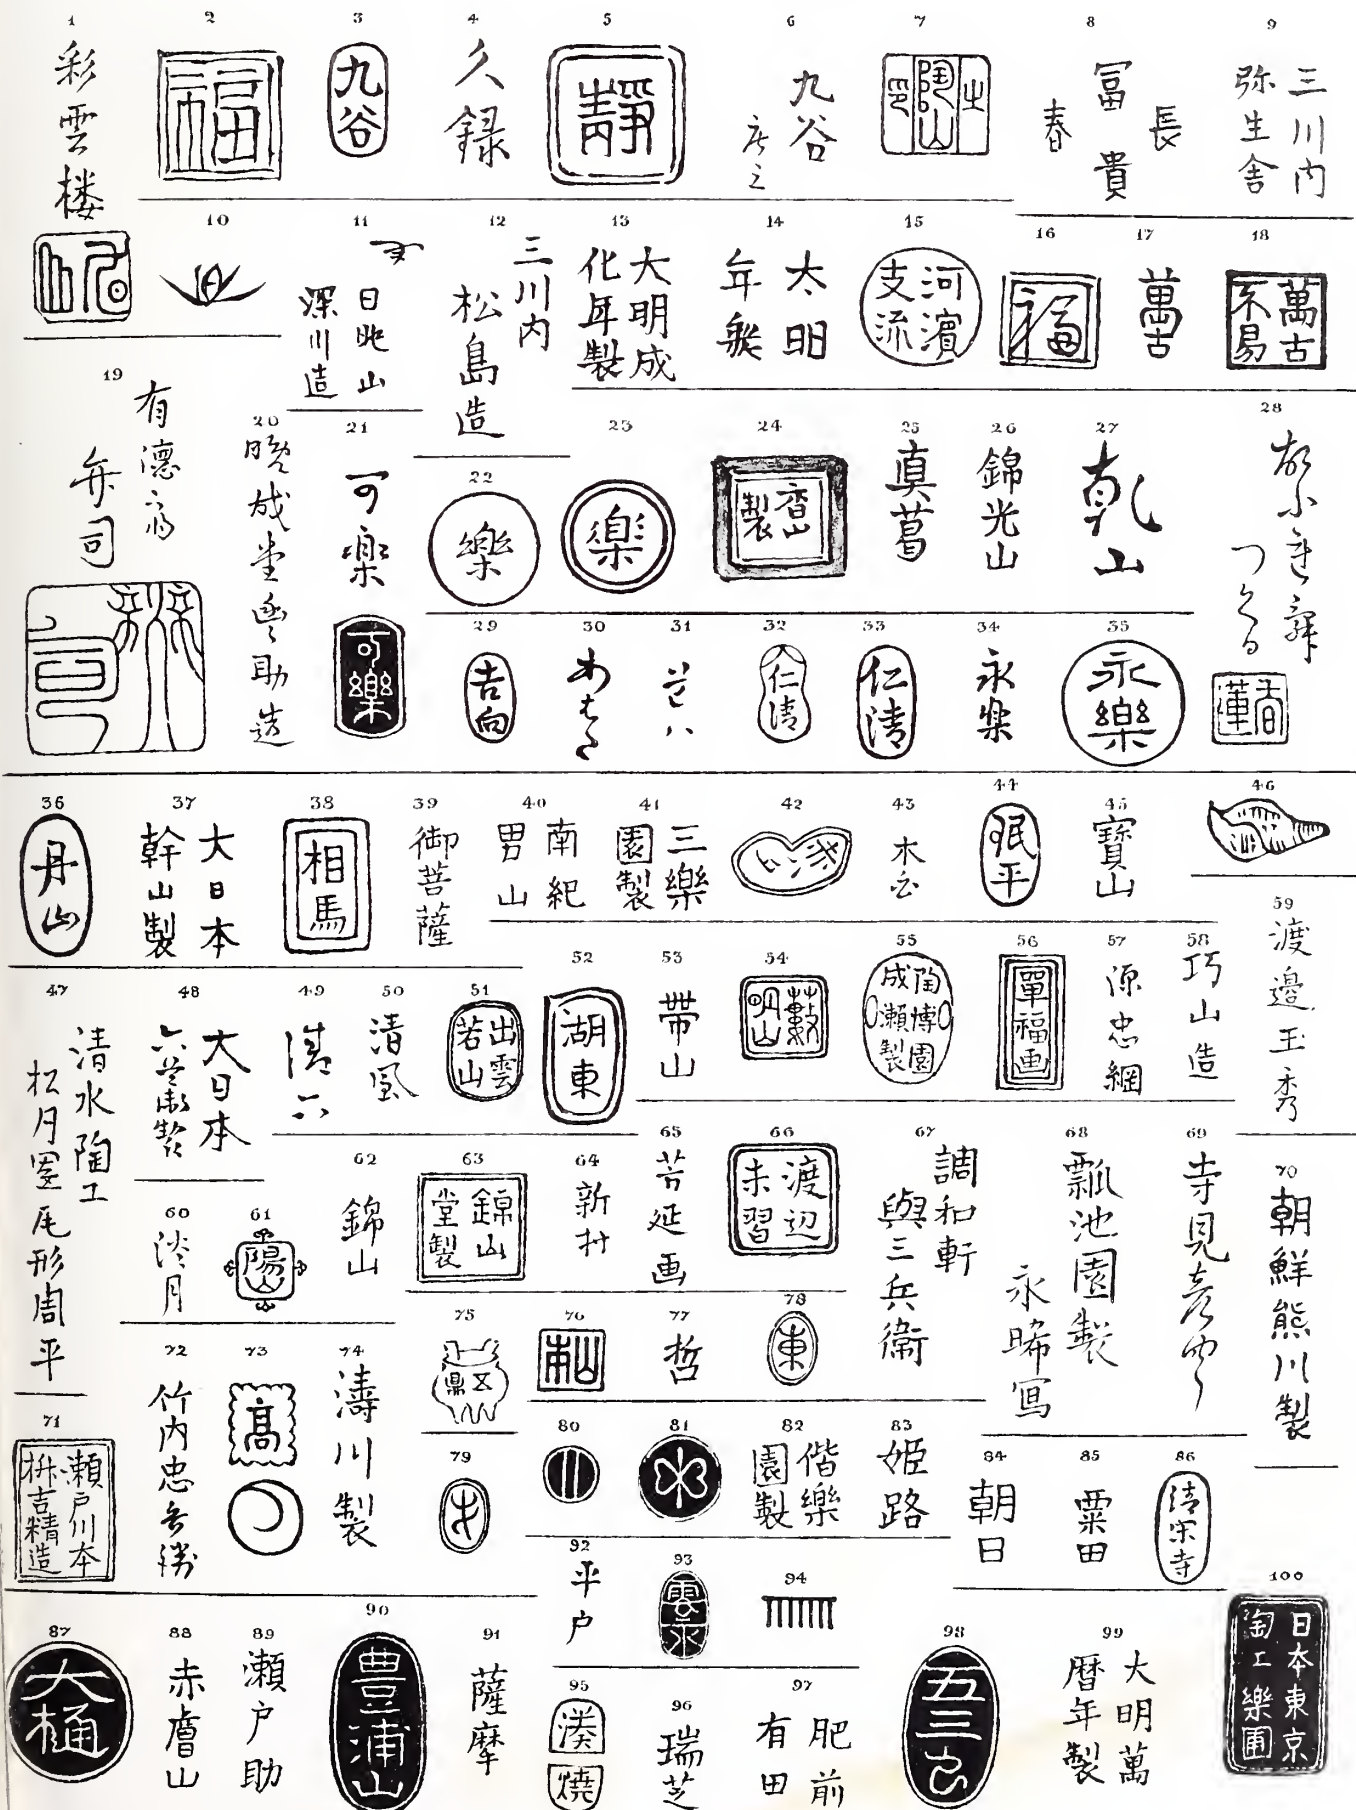 1
彩雲楼
2
福
3
九谷
4
久録
5
静
6
九谷
7
陶山
之
印
8
富貴
長
春
9
三川内
弥生舎
10
11
日
山
深川造
12
三川内
松島造
13
大明成
化年製
14
太明
年製
15
河濱
支流
16
福
17
萬古
18
萬古
不易
19
有徳
弁司
20
晩成堂豊助造
21
可楽
可樂
22
樂
23
楽
24
香山
製
25
真葛
26
錦光山
27
乾山
28
つくる
29
吉向
30
31
32
仁清
33
仁清
34
永楽
35
永樂
36
丹山
37
大日本
幹山製
38
相馬
39
御菩薩
40
南紀
男山
41
三樂
園製
42
43
木白
44
珉平
45
寶山
46
47
清水陶工
松月
尾形周平
48
大日本
六兵衛製
49
清六
50
清風
51
出雲
若山
52
湖東
53
帯山
54
明山
55
陶博園
成瀬製
56
單福画
57
源忠綱
58
巧山造
59
渡邉玉秀
60
淡月
61
陽山
62
錦山
63
錦山
堂製
64
新村
65
芳延画
66
渡辺
未習
67
調和軒
與三兵衛
68
瓢池園製
永晞寫
69
寺見
70
朝鮮熊川製
71
瀬戸川本
桝吉精造
72
竹内忠兵衛
73
高
74
濤川製
75
鼎
五
76
77
哲
78
東
79
80
81
82
偕樂
園製
83
姫路
84
朝日
85
粟田
86
清宗寺
87
大樋
88
赤膚山
89
瀬戸助
90
豊浦山
91
薩摩
92
平戸
93
雲永
94
95
湊
燒
96
瑞芝
97
肥前
有田
98
五三良
99
大明萬
暦年製
100
日本東京
陶工樂圃